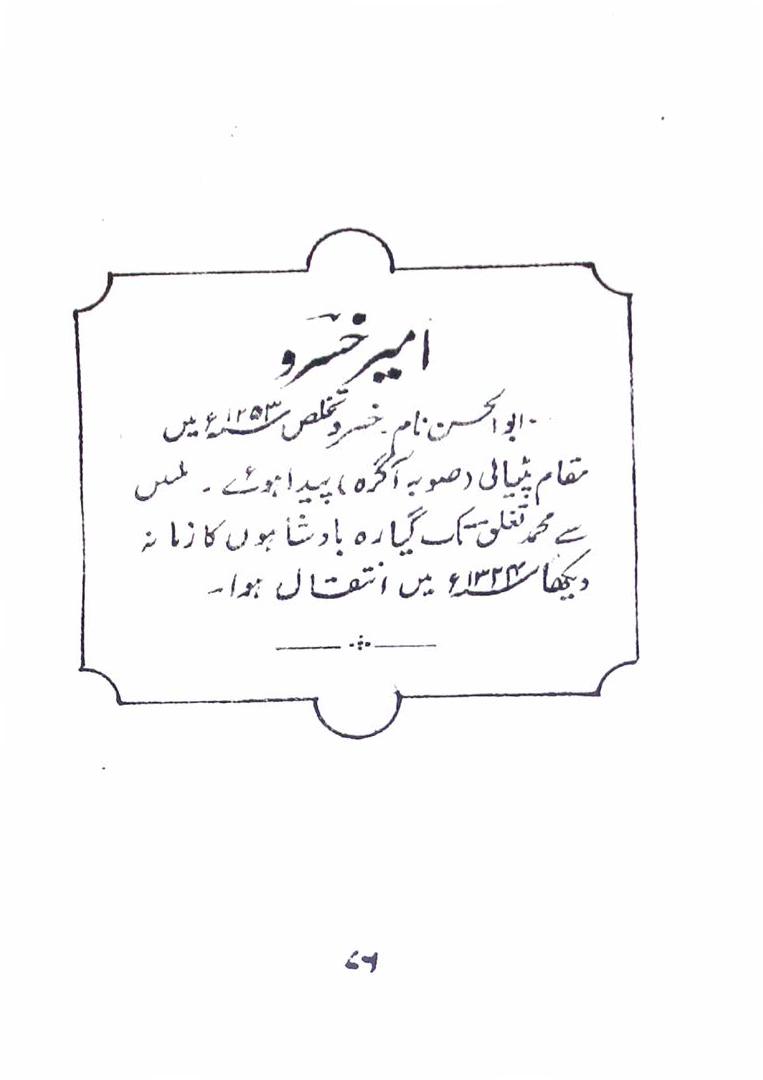 امیر خسرو
ابوالحسن نام۔ خسرو تخلص ۱۲۵۳ء میں
مقام پٹیالی (صوبہ آگرہ) پیدا ہوئے۔
سے محمد تغلق تک گیارہ بادشاہوں کا زمانہ
دیکھا ۱۳۲۴ء میں انتقال ہوا۔
۷۹